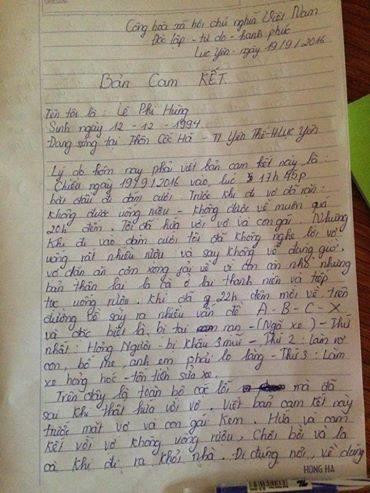 Cộng hòa xã hội chủ nghĩa Việt Nam
Độc lập - tự do - hạnh phúc
Lục Yên - ngày 19/9/2016
Bản Cam KẾT.
Tên tôi là : Lê Phi Hùng
Sinh ngày 12 - 12 - 1994
Đang sống tại Thôn Cốc Há - TT Yên Thế - H Lục Yên
Lý do hôm nay phải viết bản cam kết này là :
Chiều ngày 19/9/2016 vào lúc 17h45p
bắt đầu đi đám cưới. Trước khi đi vợ đã dặn:
không được uống rượu - không được về muộn quá
20h đêm. Tôi đã hứa với vợ và con gái. Nhưng
khi đi vào đám cưới tôi đã không nghe lời vợ
uống rất nhiều rượu và say không về đúng giờ.
vợ dặn ăn cơm xong phải về vì đón con nhỏ nhưng
bản thân lại la cà ở lại thanh niên và tiếp
tục uống rượu. Khi đã 22h đêm mới về trên
đường bê say ra nhiều vấn đề A - B - C - X
và đặc biệt là bị tai nạn - (Ngã xe) - Thứ
nhất : Hỏng Người - bị khâu 3 mũi - Thứ 2 : làm vợ
con, bố mẹ, anh em phải lo lắng - Thứ 3 : Làm
xe hỏng hóc - tốn tiền sửa xe.
Trên đây là toàn bộ các lỗi mà đã
sai khi thất hứa với vợ. Viết bản cam kết này
trước mặt vợ và con gái Kem. Hứa và cam
kết với vợ không uống rượu, chơi bời và la
cà khi đi ra khỏi nhà. Đi đúng nơi, về đúng
HỒNG HÀ